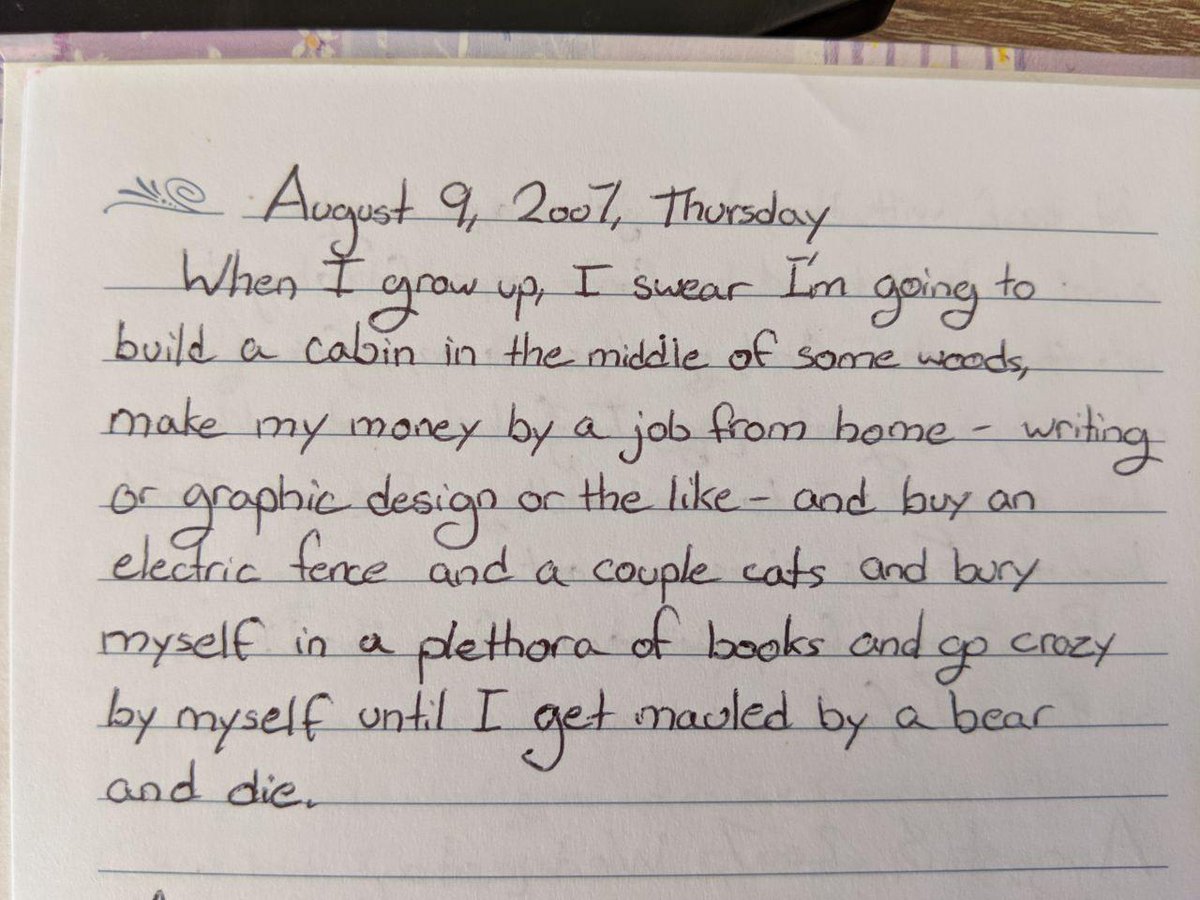 August 9, 2007, Thursday
When I grow up, I swear I'm going to
build a cabin in the middle of some woods,
make my money by a job from home - writing
or graphic design or the like - and buy an
electric fence and a couple cats and bury
myself in a plethora of books and go crazy
by myself until I get mauled by a bear
and die.